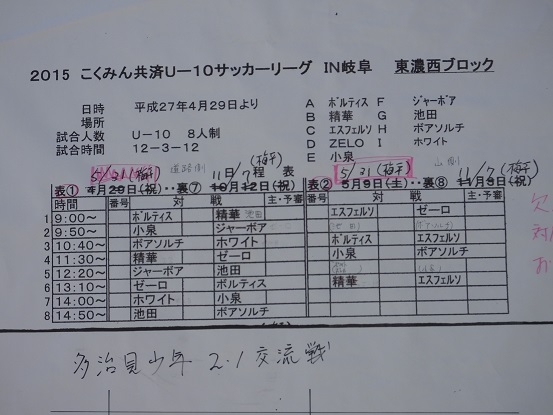 2015 こくみん共済U－10サッカーリーグ IN岐阜 東濃西ブロック
日時 平成27年4月29日より
場所
試合人数 U－10 8人制
試合時間 12－3－12
A ボルティス F ジャーボア
B 精華 G 池田
C エスフェルソ H ボアソルチ
D ZELO I ホワイト
E 小泉
5/31(梅平) 道路側 11/7(梅平) 5/31(梅平) 山側 11/7(梅平)
表① 4月29日(祝)・・裏⑦ 10月12日(祝) 程 表 表② 5月9日(土)・・裏⑧ 11月3日(祝)
時間 番号 対 戦 主・予審 番号 対 戦 主・予審
1 9:00～ ボルティス 精華 エスフェルソ ゼーロ
2 9:50～ 小泉 ジャーボア
3 10:40～ ボアソルチ ホワイト ボルティス エスフェルソ
4 11:30～ 精華 ゼーロ 小泉 ボアソルチ
5 12:20～ ジャーボア 池田
6 13:10～ ゼーロ ボルティス 精華 エスフェルソ
7 14:00～ ホワイト 小泉
8 14:50～ 池田 ボアソルチ
欠
対
お
多治見少年 2.1 交流戦